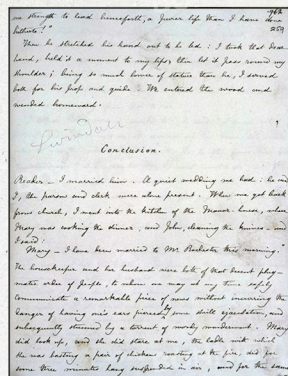 962
me strength to lead henceforth, a purer life than I have done
259
hitherto!"
Then he stretched his hand out to be led: I took that dear
hand, held it a moment to my lips, then let it pass round my
shoulder; being so much lower of stature than he, I served
both for his prop and guide. We entered the wood and
wended homeward.
Conclusion.
Reader – I married him. A quiet wedding we had: he and
I, the parson and clerk were alone present. When we got back
from church, I went into the kitchen of the Manor-house, where
Mary was cooking the dinner, and John, cleaning the knives and
I said:
"Mary – I have been married to Mr Rochester this morning."
The housekeeper and her husband were both of that decent phleg-
matic order of people, to whom one may at any time safely
communicate a remarkable piece of news without incurring the
danger of having one's ears pierced by some shrill ejaculation, and
subsequently stunned by a torrent of wordy wonderment. Mary
did look up, and she did stare at me, the ladle with which
she was basting a pair of chickens roasting at the fire, did for
some three minutes hang suspended in air, and for the same